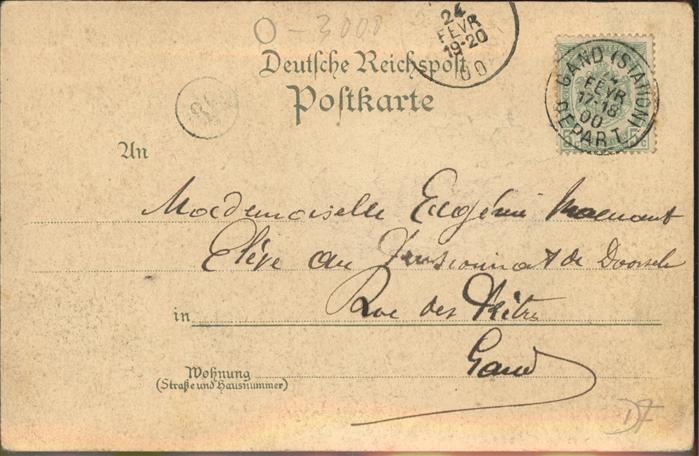 0-3000
24
FEVR
19-20
00
Deutsche Reichspost
Postkarte
GAND (STATION)
FEVR
17-18
00
DEPART
5
An
Mademoiselle Eugénie
Elève au Pensionnat de Doorsele
Rue des
in
Gand
Wohnung
(Straße und Hausnummer)